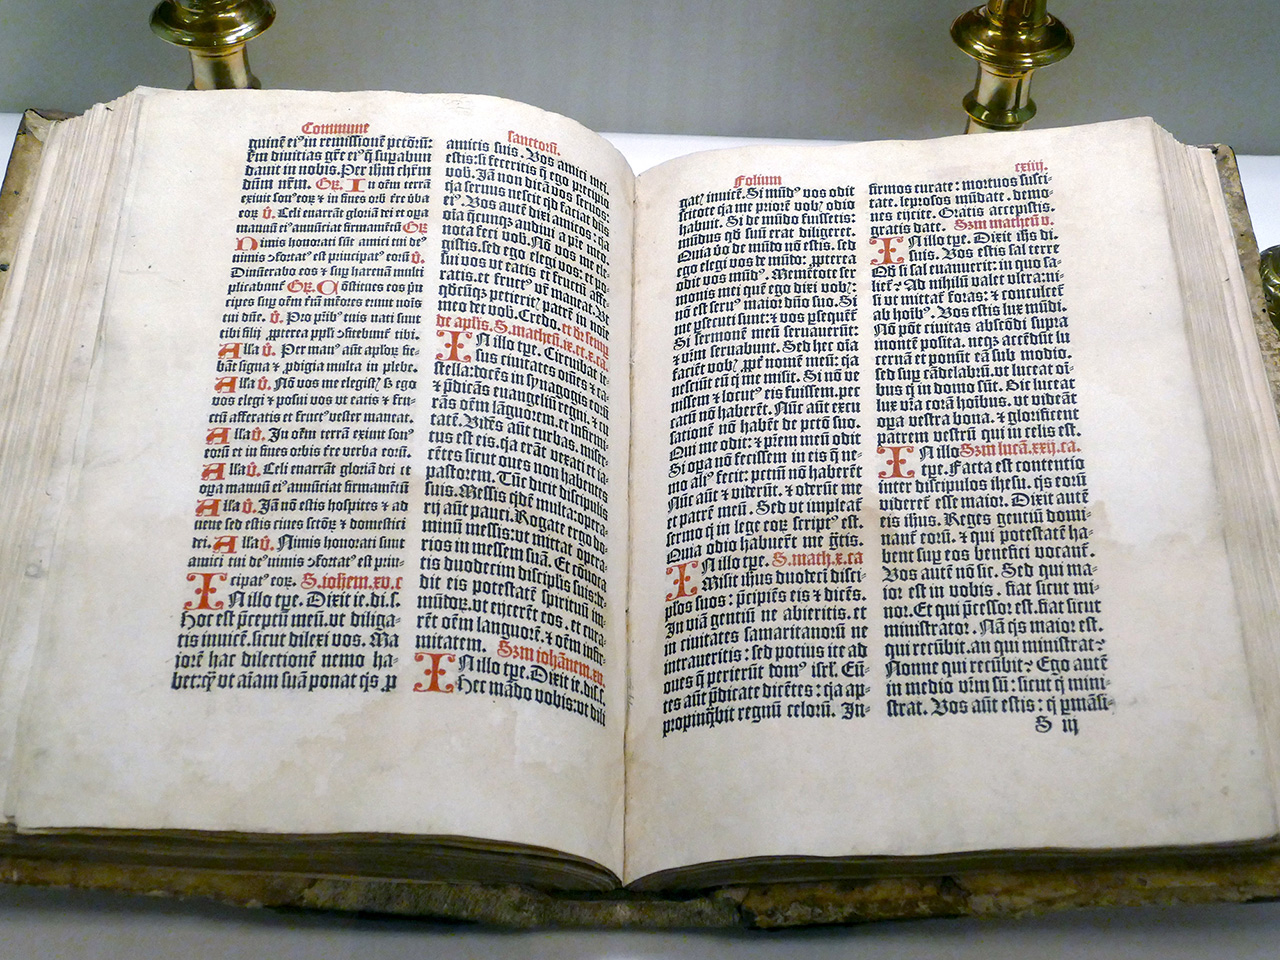 Commune
guinē ei⁹ in remissionē pctōrū:
ẜm divitias grē ei⁹ q̄ suꝑabun
davit in nobis. Per ihm chrm̄
dūm nrm̄. Gr̄. In oēm terrā
exivit son⁹ eoꝝ & in fines orb̄ tre v̄ba
eoꝝ v̄. Celi enarrāt gloriā dei et oꝑa
manuū ei⁹ ānunciat firmamentū Gr̄
Nimis honorati sūt amici tui de⁹
nimis ꝯfortat⁹ est principat⁹ eorū v̄.
Dinūerabo eos & suꝑ harenam multi
plicabunt̄
cipes suꝑ oēm
tui dn̄e. v̄. Pro prīb⁹
tibi filii ꝓpterea ppl'i ꝯfitebunt̄ tibi.
Alla v̄. Per man⁹ aūt aploꝝ fie-
bāt signa & ꝓdigia multa in plebe.
Alla v̄. Nō vos me elegist⁊ s̄ ego
vos elegi & posui vos ut eatis & fru-
ctū afferatis et fruct⁹ vester maneat.
Alla v̄. In oēm terrā exivit son⁹
eorū et in fines orbis tre verba eorū.
Alla v̄. Celi enarrāt gloriā dei et
oꝑa manuū ei⁹ ānunciat firmamentū
Alla v̄. Jā nō estis hospites & ad
vene sed estis cives sctōꝝ & domestici
dei. Alla v̄. Nimis honorati sunt
amici tui de⁹ nimis ꝯfortat⁹ est prin-
cipat⁹ eoꝝ. S. iohem. xv. c
In illo tp̄e. Dixit ie. di. s.
Hoc est p̄ceptū meū. ut diliga-
tis invicē. sicut dilexi vos. Ma
iorē hac dilectionē nemo ha-
bet: q̄ ut aīam suā ponat q̄s. ꝓ
sanctorū.
amicis suis. Vos amici mei
estis: si feceritis q̄ ego precipio
vob. Jā non dicā vos servos:
q̄a servus nescit q̄d faciat dn̄s
ei⁹. Vos autē dixi amicos: q̄a
oīa q̄cunq̄ audivi a p̄re meo
nota feci vob. Nō vos me ele-
gistis. sed ego elegi vos: et po-
sui vos ut eatis et fructū affe-
ratis. et fruct⁹ ur̄ maneat. Ut
q̄dcūq̄ petierit⁊ patrem in noīe
meo det vob. Credo. et dr̄ semꝑ
de aplis. S. matheū. ix. et. x. ca.
In illo tp̄e. Circuibat ie-
sus civitates om̄es & ca-
stella: docēs in synagogis eorū
& p̄dicās evangeliū regni. & cu
rās oēm lāguorem. et infirmi-
tatē. Vidēs aūt turbas. miser-
tus est eis. q̄a erāt vexati et ia-
cētes sicut oves non habentes
pastorem. Tūc dicit discipulis
suis. Messis q̄dē multa: opera-
rij aūt pauci. Rogate ergo do-
minū messis: ut mittat opera-
rios in messem suā. Et cōvoca
tis duodecim discipl'is suis: de-
dit eis potestatē spirituū im-
mūdoꝝ. ut eijcerēt eos. et cura-
rēt oēm languorē: & oēm infir-
mitatem. Sz̄m iohānem. xv.
In illo tp̄e. Dixit ie. di. s.
Hec mādo vobis: ut dili
Folium
gat⁊ invicē. Si mūd⁹ vos odit
scitote q̄a me priorē vob⁊ odio
habuit. Si de mūdo fuissetis.
mūdus q̄d suū erat diligeret.
Quia v̄o de mūdo nō estis. sed
ego elegi vos de mūdo: ꝓpterea
odit vos mūd⁹. Mēentote ser
monis mei quē ego dixi vob⁊:
Nō est serv⁹ maior dn̄o suo. Si
me ꝑsecuti sunt: & vos ꝑsequēt̄
Si sermonē meū servaverūt:
& vr̄m servabunt. Sed hec oīa
facient vob⁊ ꝓpt̄ nomē meū: q̄a
nesciūt eū q̄ me misit. Si nō ve
nissem & locut⁹ eis fuissem. pec
catū nō haberēt. Nūc aūt excu
sationē nō habēt de pctō suo.
Qui me odit: & pr̄em meū odit
Si oꝑa nō fecissem in eis q̄ ne-
mo ali⁹ fecit: pctm̄ nō haberēt
Nūc aūt & viderūt. & oderūt me
et patrē meū. Sed ut impleat̄
sermo q̄ in lege eoꝝ script⁹ est.
Quia odio habuerēt me gr̄tis.
In illo tp̄e. S. math. x. ca
Misit ih̄us duodecī disci-
pl'os suos: p̄cipiēs eis & dicēs.
In viā gentiū ne abieritis. et
in civitates samaritanorū ne
intraveritis: sed potius ite ad
oves q̄ perierūt dom⁹ isrl. Eū-
tes aūt p̄dicate dicētes: q̄a ap-
propinq̄bit regnū celorū. In-
cxiiij.
firmos curate: mortuos susci-
tate. leprosos mūdate. demo-
nes ejicite. Gratis accepistis.
gratis date. Sz̄m matheū v.
In illo tp̄e. Dixit ih̄s di.
suis. Vos estis sal terre
Qd̄ si sal evanuerit: in quo sa-
liet̄? Ad nihilū valet ultra: ni-
si ut mittat̄ foras: & conculcet̄
ab hoīb⁹. Vos estis lux mūdi.
Nōn pōt civitas abscōdi supra
montē posita. neq̄ accēdūt lu
cernā et ponūt eā sub modio.
sed suꝑ cādelabrū. ut luceat oī
bus q̄ in domo sūt. Sic luceat
lux vr̄a corā hoībus. ut videāt
oꝑa vestra bona. & glorificent
patrem vestrū qui in celis est.
In illo Sz̄m lucā. xxij. ca.
tp̄e. Facta est contentio
inter discipulos ihesu. quis eorū
videret̄ esse maior. Dixit autē
eis ih̄us. Reges gentiū domi-
nant̄ eorū. & qui potestatē ha-
bent suꝑ eos benefici vocant̄.
Vos autē nō sic. Sed qui ma-
ior est in vobis. fiat sicut mi-
nor. Et qui p̄cessor est. fiat sicut
ministrator. Nā q̄s maior est.
qui recūbit. an qui ministrat?
Nonne qui recūbit? Ego autē
in medio vr̄m sū: sicut q̄ mini-
strat. Vos aūt estis: q̄ ꝑmāsi-
S iij